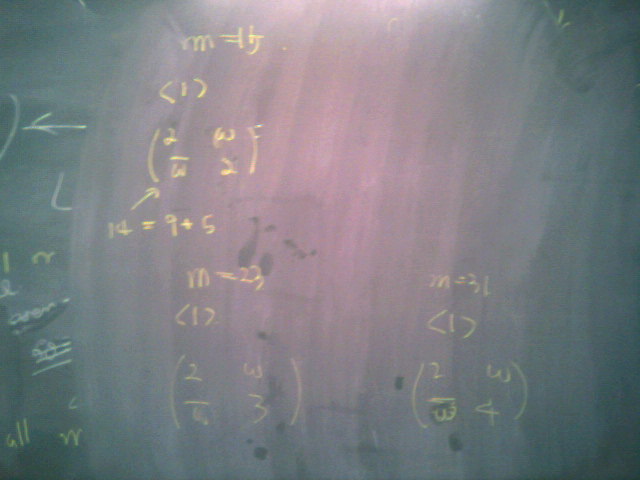 m = 15
⟨1⟩
( 2 ω
ω̄ 2 )
14 = 9 + 5
m = 23
⟨1⟩
( 2 ω
ω̄ 3 )
m = 31
⟨1⟩
( 2 ω
ω̄ 4 )
all m